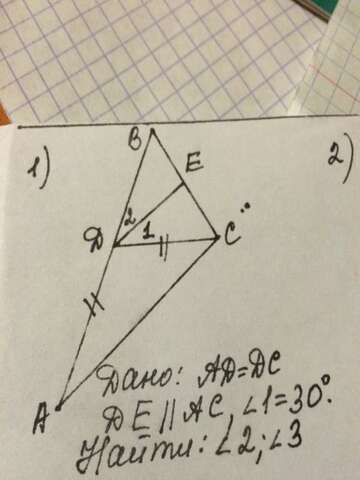 1)
2)
B
E
2
D
1
C
A
Дано: AD=DC
DE || AC, ∠1=30°.
Найти: ∠2; ∠3